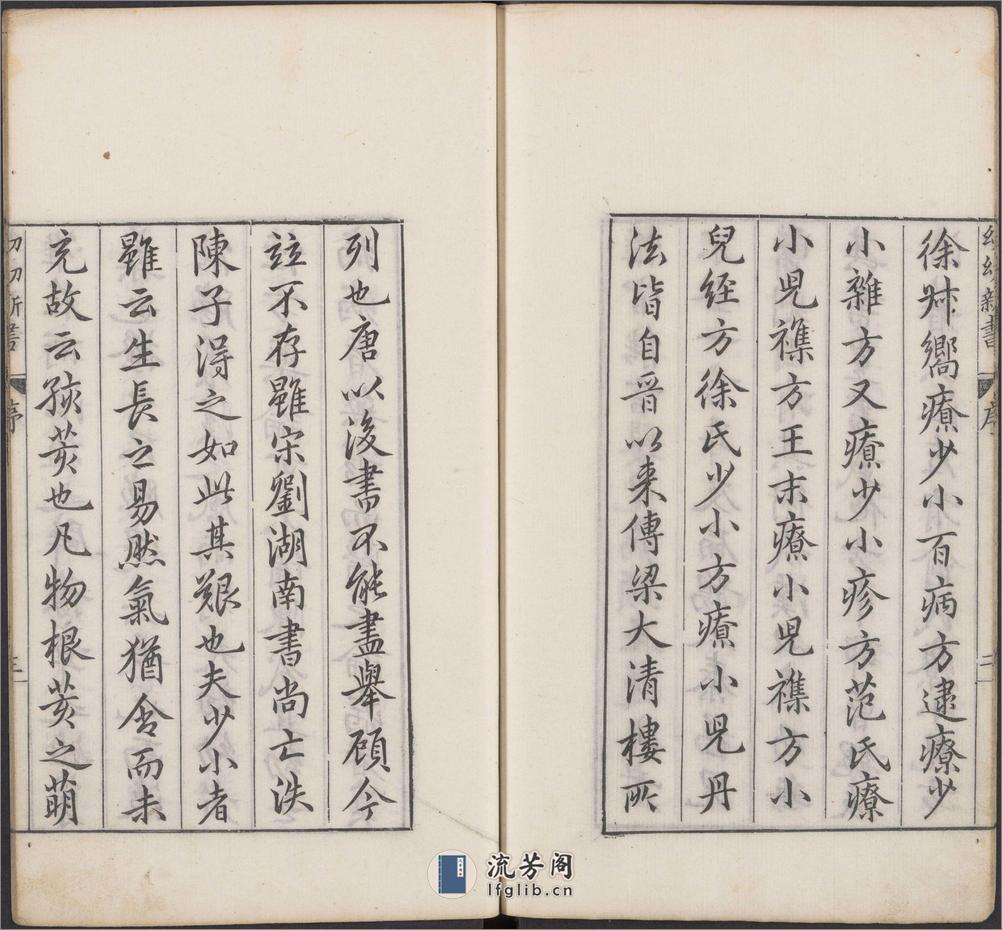 幼幼新書
序
二
徐叔嚮療少小百病方逮療少
小雜方又療少小疹方范氏療
小兒襍方王末療小兒襍方小
兒經方徐氏少小方療小兒丹
法皆自晉以来傳梁大清樓所
列也唐以後書不能盡舉顧今
竝不存雖宋劉湖南書尚亡泆
陳子淂之如此其艱也夫少小者
雖云生長之易然氣猶含而未
充故云孩荄也凡物根荄之萌
幼幼新書
序
三
流芳阁
lfglib.cn